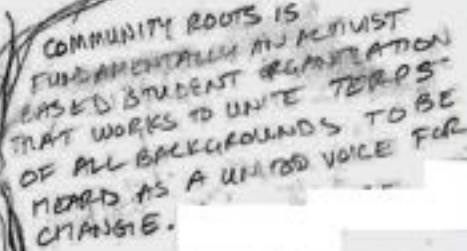 COMMUNITY ROOTS IS
FUNDAMENTALLY AN ACTIVIST
BASED STUDENT ORGANIZATION
THAT WORKS TO UNITE TERPS
OF ALL BACKGROUNDS TO BE
HEARD AS A UNITED VOICE FOR
CHANGE.